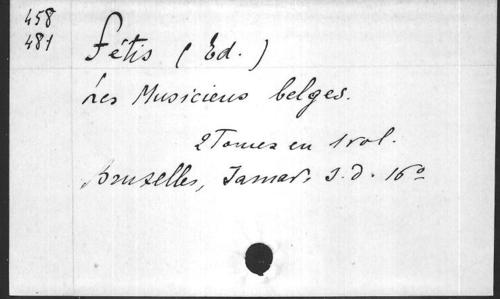 458
481
Fétis (Ed.)
Les Musiciens belges.
2 Tomes en 1 vol.
Bruxelles, Jamar, S. d. 16º